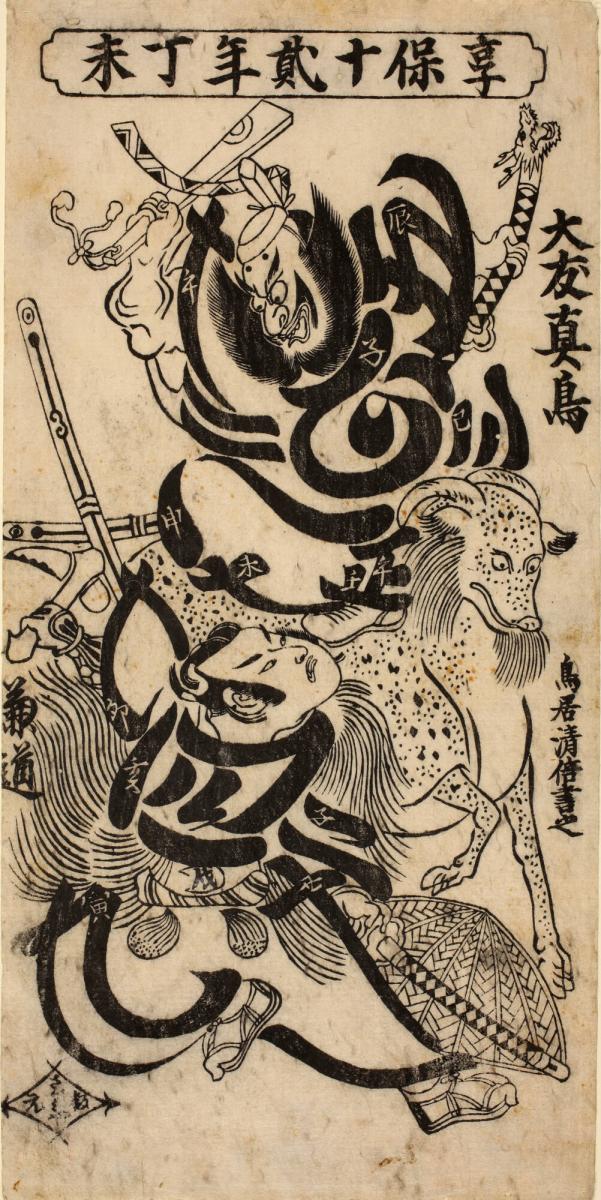 享保十貳年丁未
大友真鳥
辰
午
子
巳
申
未
丑
午
鳥居清倍書之
兼道
卯
亥
子
酉
戌
寅
板元